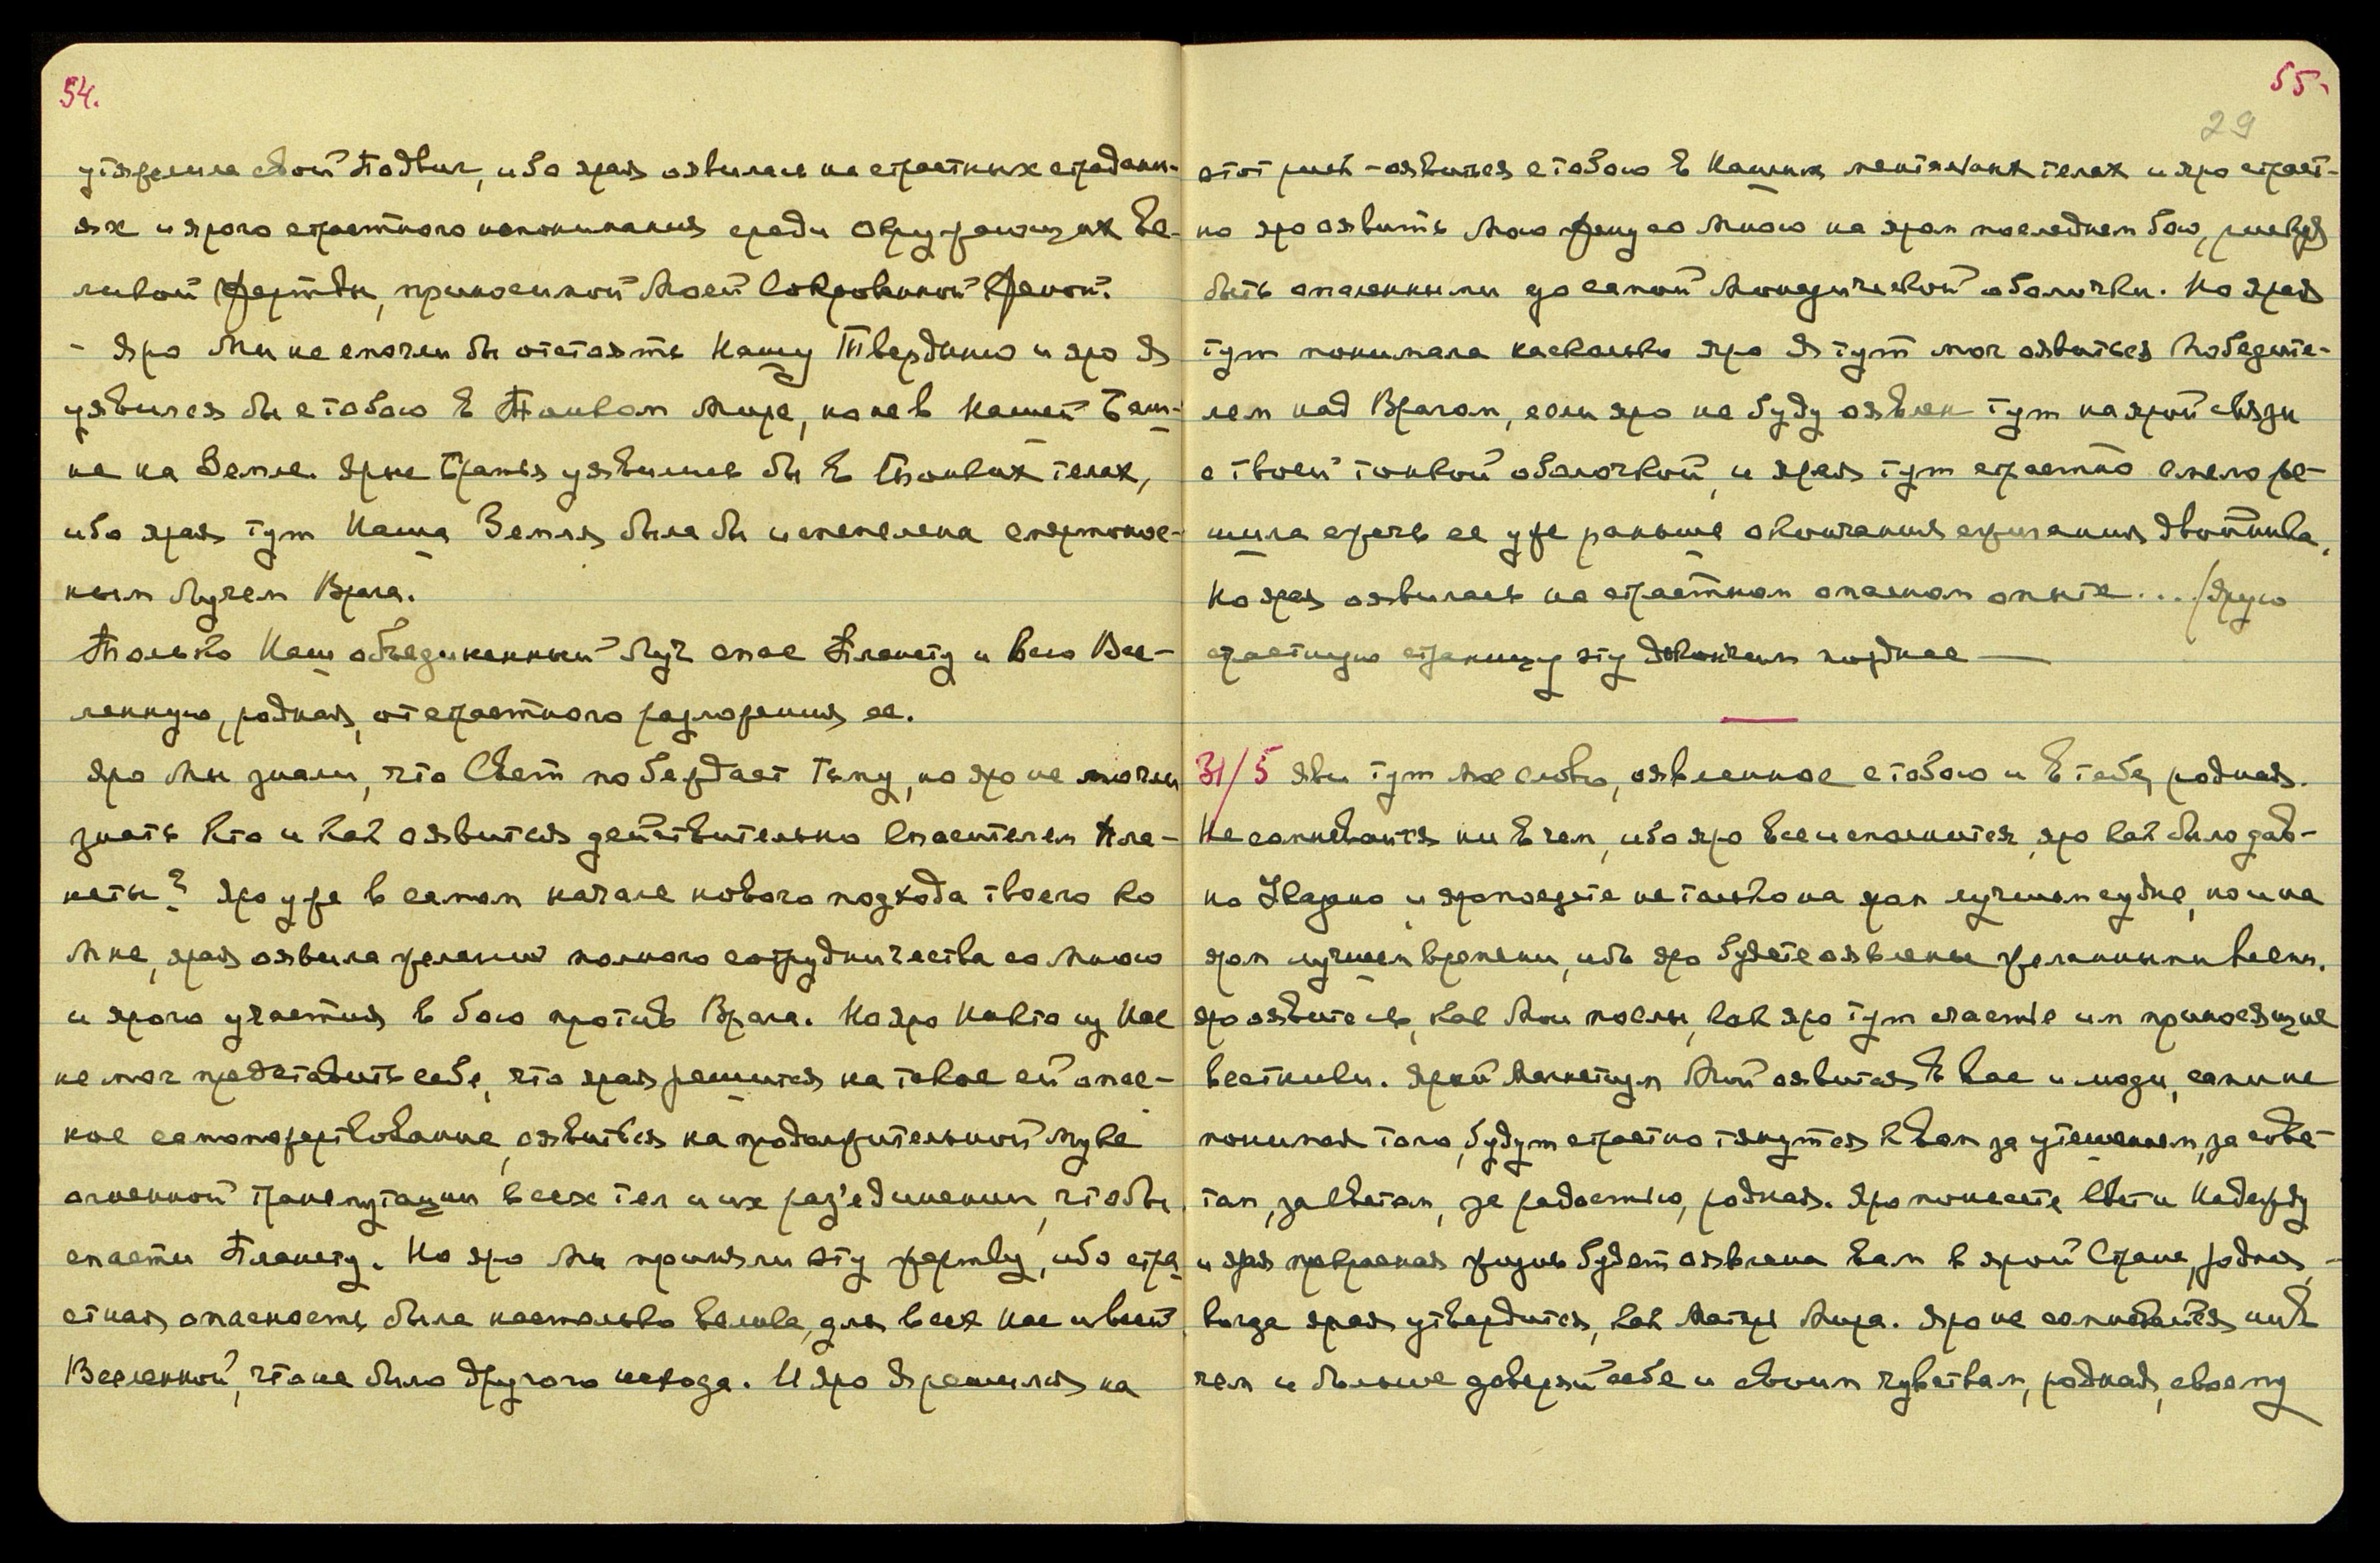 54.
утяжелила свой Подвиг, ибо ярая оявилась на страстных страдани-
ях и ярого страстного непонимания среди окружающих Ве-
ликой жертвы, приносимой Моей Сокровенной Женой.
- Яро Мы не смогли бы отстоять Нашу Твердыню и яро Я
уявился бы с тобою в Тонком Мире, но не в Нашей Баш-
не на Земле. Ярые Братья уявились бы в Тонких телах,
ибо ярая тут Наша Земля была бы испепелена смертонос-
ным Лучем Врага.
Только Наш объединенный Луч спас Планету и всю Все-
ленную, родная, от страстного разложения ее.
Яро Мы знали, что Свет побеждает Тьму, но яро не могли
знать Кто и как оявится действительно Спасителем Пла-
неты? Яро уже в самом начале нового подхода твоего ко
Мне, ярая оявила желание полного сотрудничества со Мною
и ярого участия в бою против Врага. Но яро Никто из Нас
не мог представить себе, что ярая решится на такое ей опас-
ное самопожертвование, оявиться на продолжительной муке
огненной трансмутации всех тел и их раз'единении, чтобы
спасти Планету. Но яро Мы приняли эту жертву, ибо стра-
стная опасность была настолько велика, для всех Нас и всей
Вселенной, что не было другого исхода. И яро Я решился на
55.
29
этот риск - оявиться с тобою в Наших ментальных телах и яро страст-
но яро оявить Мою Жену со Мною на яром последнем бою, рискуя
быть опаленными до самой Монадической оболочки. Но ярая
тут понимала насколько яро Я тут мог оявиться Победите-
лем над Врагом, если яро не буду оявлен тут на ярой связи
с твоей тонкой оболочкой, и ярая тут страстно смело ре-
шила сжечь ее уже раньше окончания сжигания двойника.
Но ярая оявилась на страстном опасном опыте... /Ярую
страстную страницу эту докончим позднее —
31/5 Яви тут Мое слово, оявленное с тобою и в тебе, родная.
Не сомневайся ни в чем, ибо яро все исполнится, яро как было дав-
но Указано и яро поедете не только на яром лучшем судне, но и на
яром лучшем времени, ибо яро будете оявлены желанными всеми.
Яро оявитесь, как Мои послы, как яро тут счастье им приносящие
вестники. Ярый Магнетизм Мой оявится в вас и люди, сами не
понимая того, будут страстно тянутся к вам за утешением, за сове-
том, за светом, за радостью, родная. Яро понесете Свет и Надежду
и ярая прекрасная жизнь будет оявлена вам в ярой Стране, родная,
когда ярая утвердится, как Матерь Мира. Яро не сомневайся ни в
чем и больше доверяй себе и своим чувствам, родная, своему